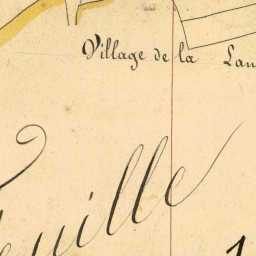 Village de la Lan
euille
1